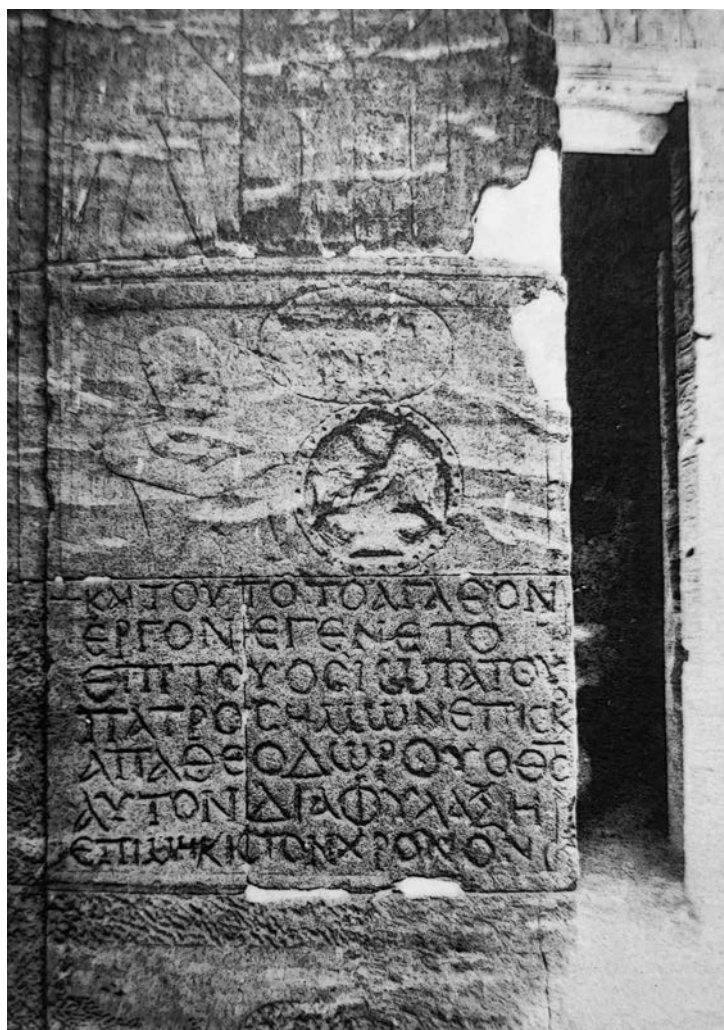 +ΚΑΙΤΟΥΤΟΤΟΑΓΑΘΟΝ
ΕΡΓΟΝΕΓΕΝΕΤΟ
ΕΠΙΤΟΥΟCΙΩΤΑΤΟΥ
ΠΑΤΡΟCΗΜΩΝΕΠΙCΚ
ΑΠΑΘΕΟΔΩΡΟΥΟΘC
ΑΥΤΟΝΔΙΑΦΥΛΑΞΗ
ΕΠΙΜΗΚΙCΤΟΝΧΡΟΝΟΝ